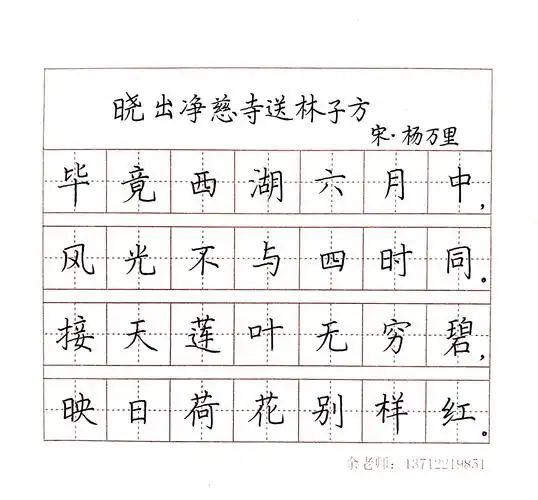 晓出净慈寺送林子方
宋·杨万里
毕竟西湖六月中，
风光不与四时同。
接天莲叶无穷碧，
映日荷花别样红。
余老师：13712219851